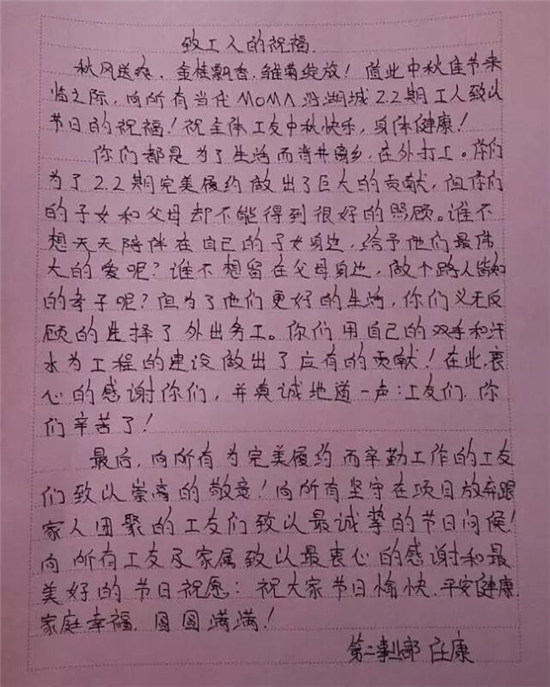 致工人的祝福
秋风送爽，金桂飘香，雏菊绽放！值此中秋佳节来
临之际，向所有当代MOMA 湖城2.2期工人致以
节日的祝福！祝全体工友中秋快乐，身体健康！
你们都是为了生活而背井离乡，在外打工。你们
为了2.2期完美履约做出了巨大的贡献，但你们
的子女和父母却不能得到很好的照顾。谁不
想天天陪伴在自己的子女身边，给予他们最伟
大的爱呢？谁不想留在父母身边，做个路人皆知
的孝子呢？但为了他们更好的生活，你们义无反
顾的选择了外出务工。你们用自己的双手和汗
水为工程的建设做出了应有的贡献！在此，衷
心的感谢你们，并真诚地道一声：工友们，你
们辛苦了！
最后，向所有为完美履约而辛勤工作的工友
们致以崇高的敬意！向所有坚守在项目放弃跟
家人团聚的工友们致以最诚挚的节日问候！
向所有工友及家属致以最衷心的感谢和最
美好的节日祝愿：祝大家节日愉快，平安健康，
家庭幸福，圆圆满满！
第二事业部 康